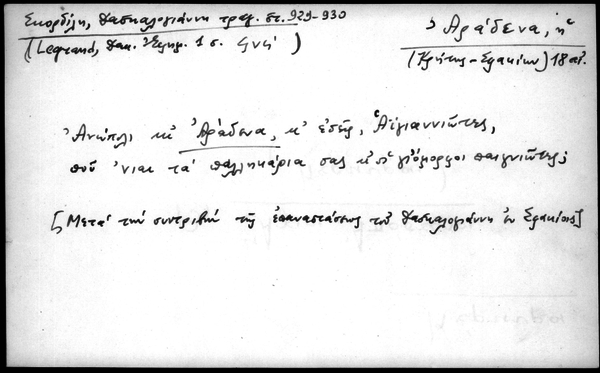 Σκορδίλη, Δασκαλογιάννη τραγ. στ. 929-930
(Legrand, Δακ. Ἑλλην. 1 σ. ϛνϛ')
Ἀράδενα, ἡ
(Κρήτης - Σφακίων) 18 αἰ.
Ἀνώπολι κι' Ἀράδενα, κ' ἐσεῖς, Ἁϊγιαννιῶτες,
ποῦ 'ναι τὰ παλληκάρια σας κ' οἱ γιόμορφοι παιγνιῶτες;
[Μετὰ τὴν συντριβὴν τῆς ἐπαναστάσεως τοῦ Δασκαλογιάννη ἐν Σφακίοις]